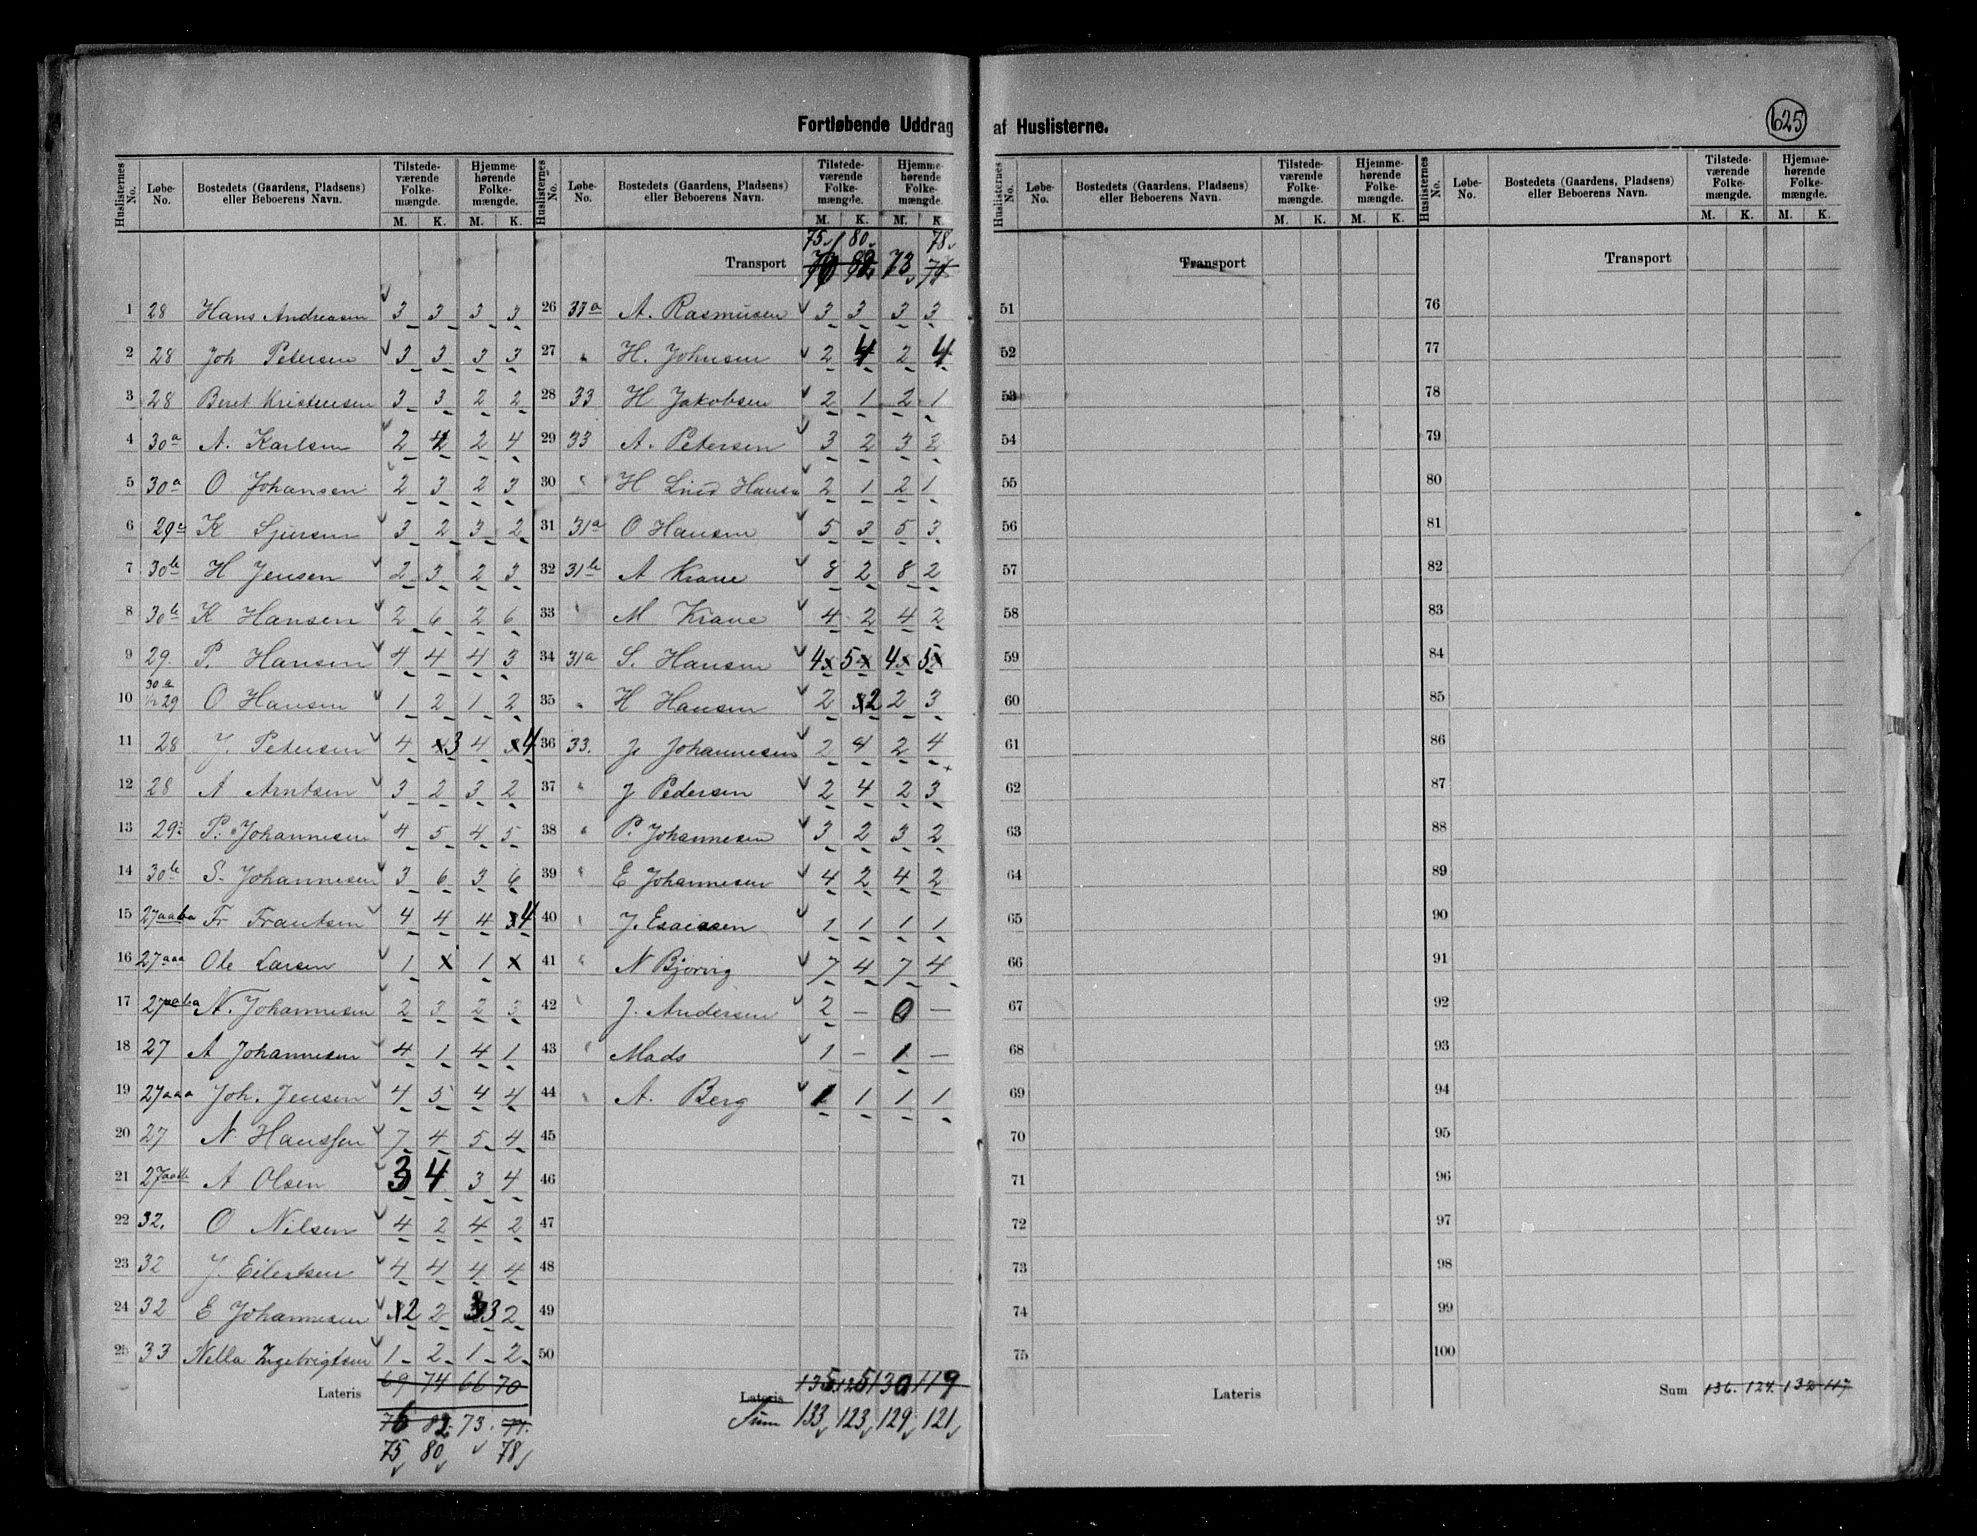 Fortløbende Uddrag af Huslisterne.
625
Huslisternes No. Løbe-No. Bostedets (Gaardens, Pladsens) eller Beboerens Navn. Tilstedeværende Folkemængde. M. K. Hjemmehørende Folkemængde. M. K.
1 28 Hans Andreasen 3 3 3 3
2 28 Joh Petersen 3 3 3 3
3 28 Beret Kristensen 3 3 2 2
4 30a A. Karlsen 2 2 4
5 30a O Johansen 2 3 2 3
6 29a K Sjursen 3 2 3 2
7 30b H Jensen 2 3 2 3
8 30b K Hansen 2 6 2 6
9 29. P. Hansen 4 4 4 3
10 30a 29 O Hansen 1 2 1 2
11 28 J. Petersen 4 x3 4 x4
12 28 A Arntsen 3 2 3 2
13 29 P. Johannesen 4 5 4 5
14 30b S. Johannesen 3 6 3 6
15 27aaba Fr Frantsen 4 4 4 4
16 27aaa Ole Larsen 1 x 1 x
17 N. Johannesen 2 3 2 3
18 27 A Johannesen 4 1 4 1
19 27aaa Joh. Jensen 4 5 4 4
20 27 N. Hanssen 7 4 5 4
21 A Olsen 3 4 3 4
22 32. O Nilsen 4 2 4 2
23 32 J. Eilertsen 4 4 4 4
24 32 E Johannesen x2 2 3 2
25 33 Nella Ingebrigtsen 1 2 1 2
Lateris 69 74 66 70
76 82 73 77.
75 80 78
Huslisternes No. Løbe-No. Bostedets (Gaardens, Pladsens) eller Beboerens Navn. Tilstedeværende Folkemængde. M. K. Hjemmehørende Folkemængde. M. K.
75 80 78
Transport 76 82 73 77
26 33a A. Rasmusen 3 3 3 3
27 " H. Johnsen 2 4 2 4
28 33 H Jakobsen 2 1 2 1
29 33 A. Petersen 3 2 3 2
30 " H Lind Hansen 2 1 2 1
31 31a O Hansen 5 3 5 3
32 31b A Krane 8 2 8 2
33 " M Krane 4 2 4 2
34 31a S. Hansen 4x 5x 4x 5x
35 " H Hansen 2 x2 2 3
36 33. J. Johannesen 2 4 2 4
37 " J Pedersen 2 4 2 3
38 " P. Johannesen 3 2 3 2
39 " E Johannesen 4 2 4 2
40 " J. Esaiassen 1 1 1 1
41 " N Bjøring 7 4 7 4
42 " J. Andersen 2 — 0 —
43 " Mads 1 — 1 —
44 " A. Berg 1 1 1 1
45
46
47
48
49
50
Lateris 135 125 130 119
Sum 133 123 129 121
Huslisternes No. Løbe-No. Bostedets (Gaardens, Pladsens) eller Beboerens Navn. Tilstedeværende Folkemængde. M. K. Hjemmehørende Folkemængde. M. K.
Transport
51
52
53
54
55
56
57
58
59
60
61
62
63
64
65
66
67
68
69
70
71
72
73
74
75
Lateris
Huslisternes No. Løbe-No. Bostedets (Gaardens, Pladsens) eller Beboerens Navn. Tilstedeværende Folkemængde. M. K. Hjemmehørende Folkemængde. M. K.
Transport
76
77
78
79
80
81
82
83
84
85
86
87
88
89
90
91
92
93
94
95
96
97
98
99
100
Sum 136. 124. 132 117